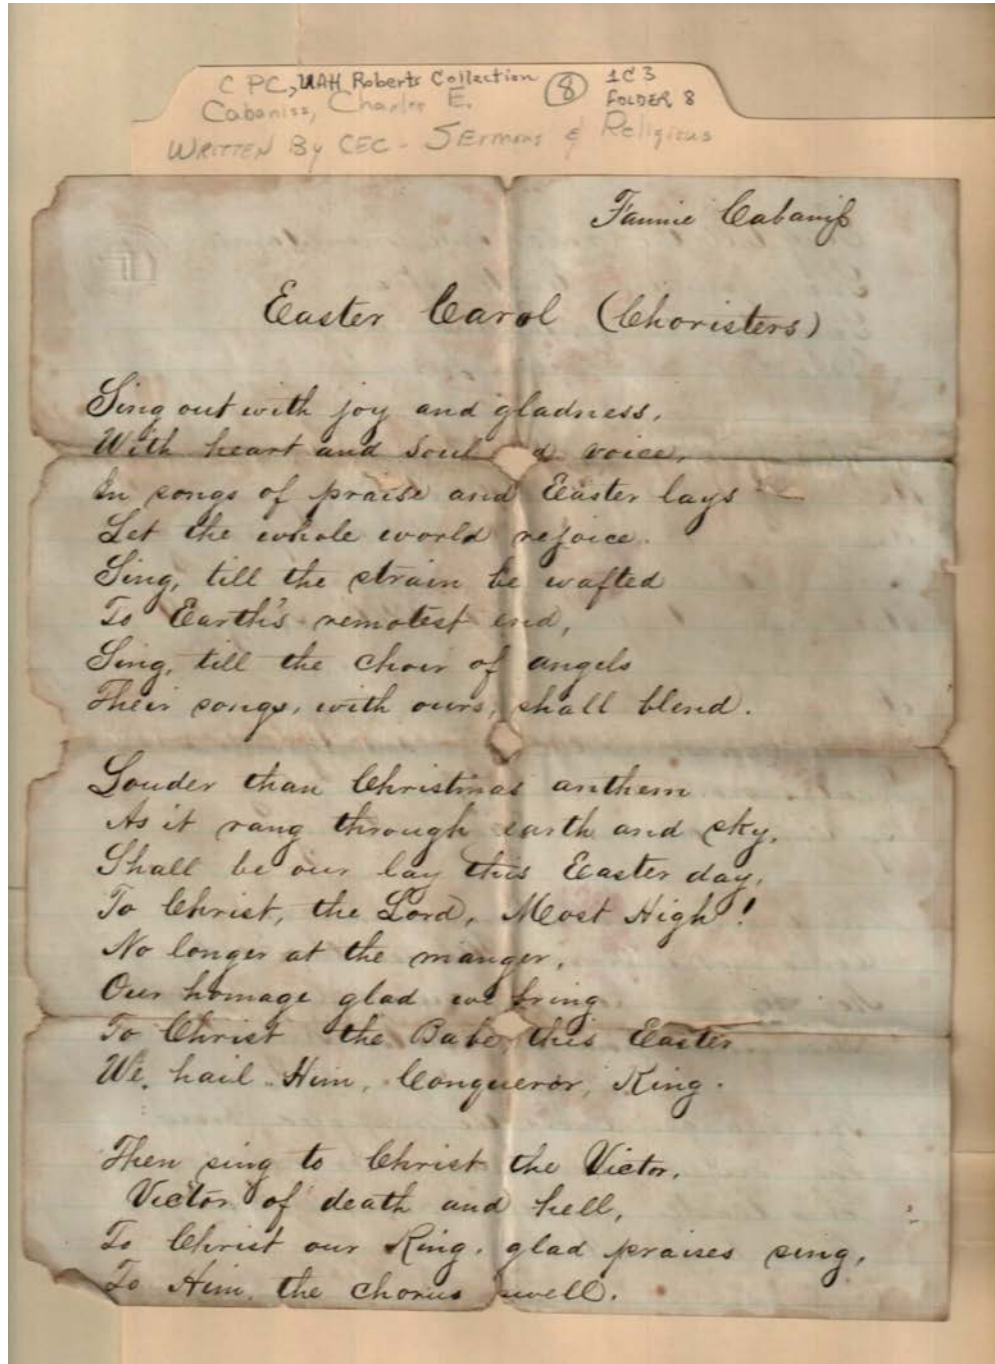 C PC, UAH Roberts Collection 8 1C3
Cabaniss, Charles E. FOLDER 8
WRITTEN By CEC - SErmons & Religious
Fannie Cabaniss
Easter Carol (Choristers)
Sing out with joy and gladness,
With heart and soul d voice,
In songs of praise and Easter lays —
Let the whole world rejoice.
Sing, till the strain be wafted
To Earth's remotest end,
Sing, till the choir of angels
Their songs, with ours, shall blend.
Louder than Christmas anthem
As it rang through earth and sky,
Shall be our lay this Easter day,
To Christ, the Lord, Most High!
No longer at the manger,
Our homage glad we bring
To Christ the Babe, this Easter
We hail Him, Conqueror, King.
Then sing to Christ the Victor,
Victor of death and hell,
To Christ our King, glad praises sing,
To Him, the chorus swell.